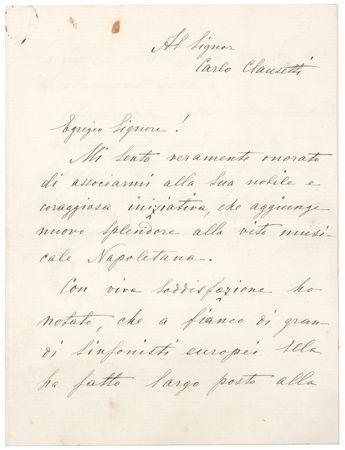 Al Signor
Carlo Clausetti
Egregio Signore!
Mi sento veramente onorato
di associarmi alla Sua nobile e
coraggiosa iniziativa, che aggiunge
nuovo splendore alla vita musi-
cale Napoletana.
Con viva soddisfazione ho
notato, che a fianco di gran-
di sinfonisti europei
ha fatto largo posto alla